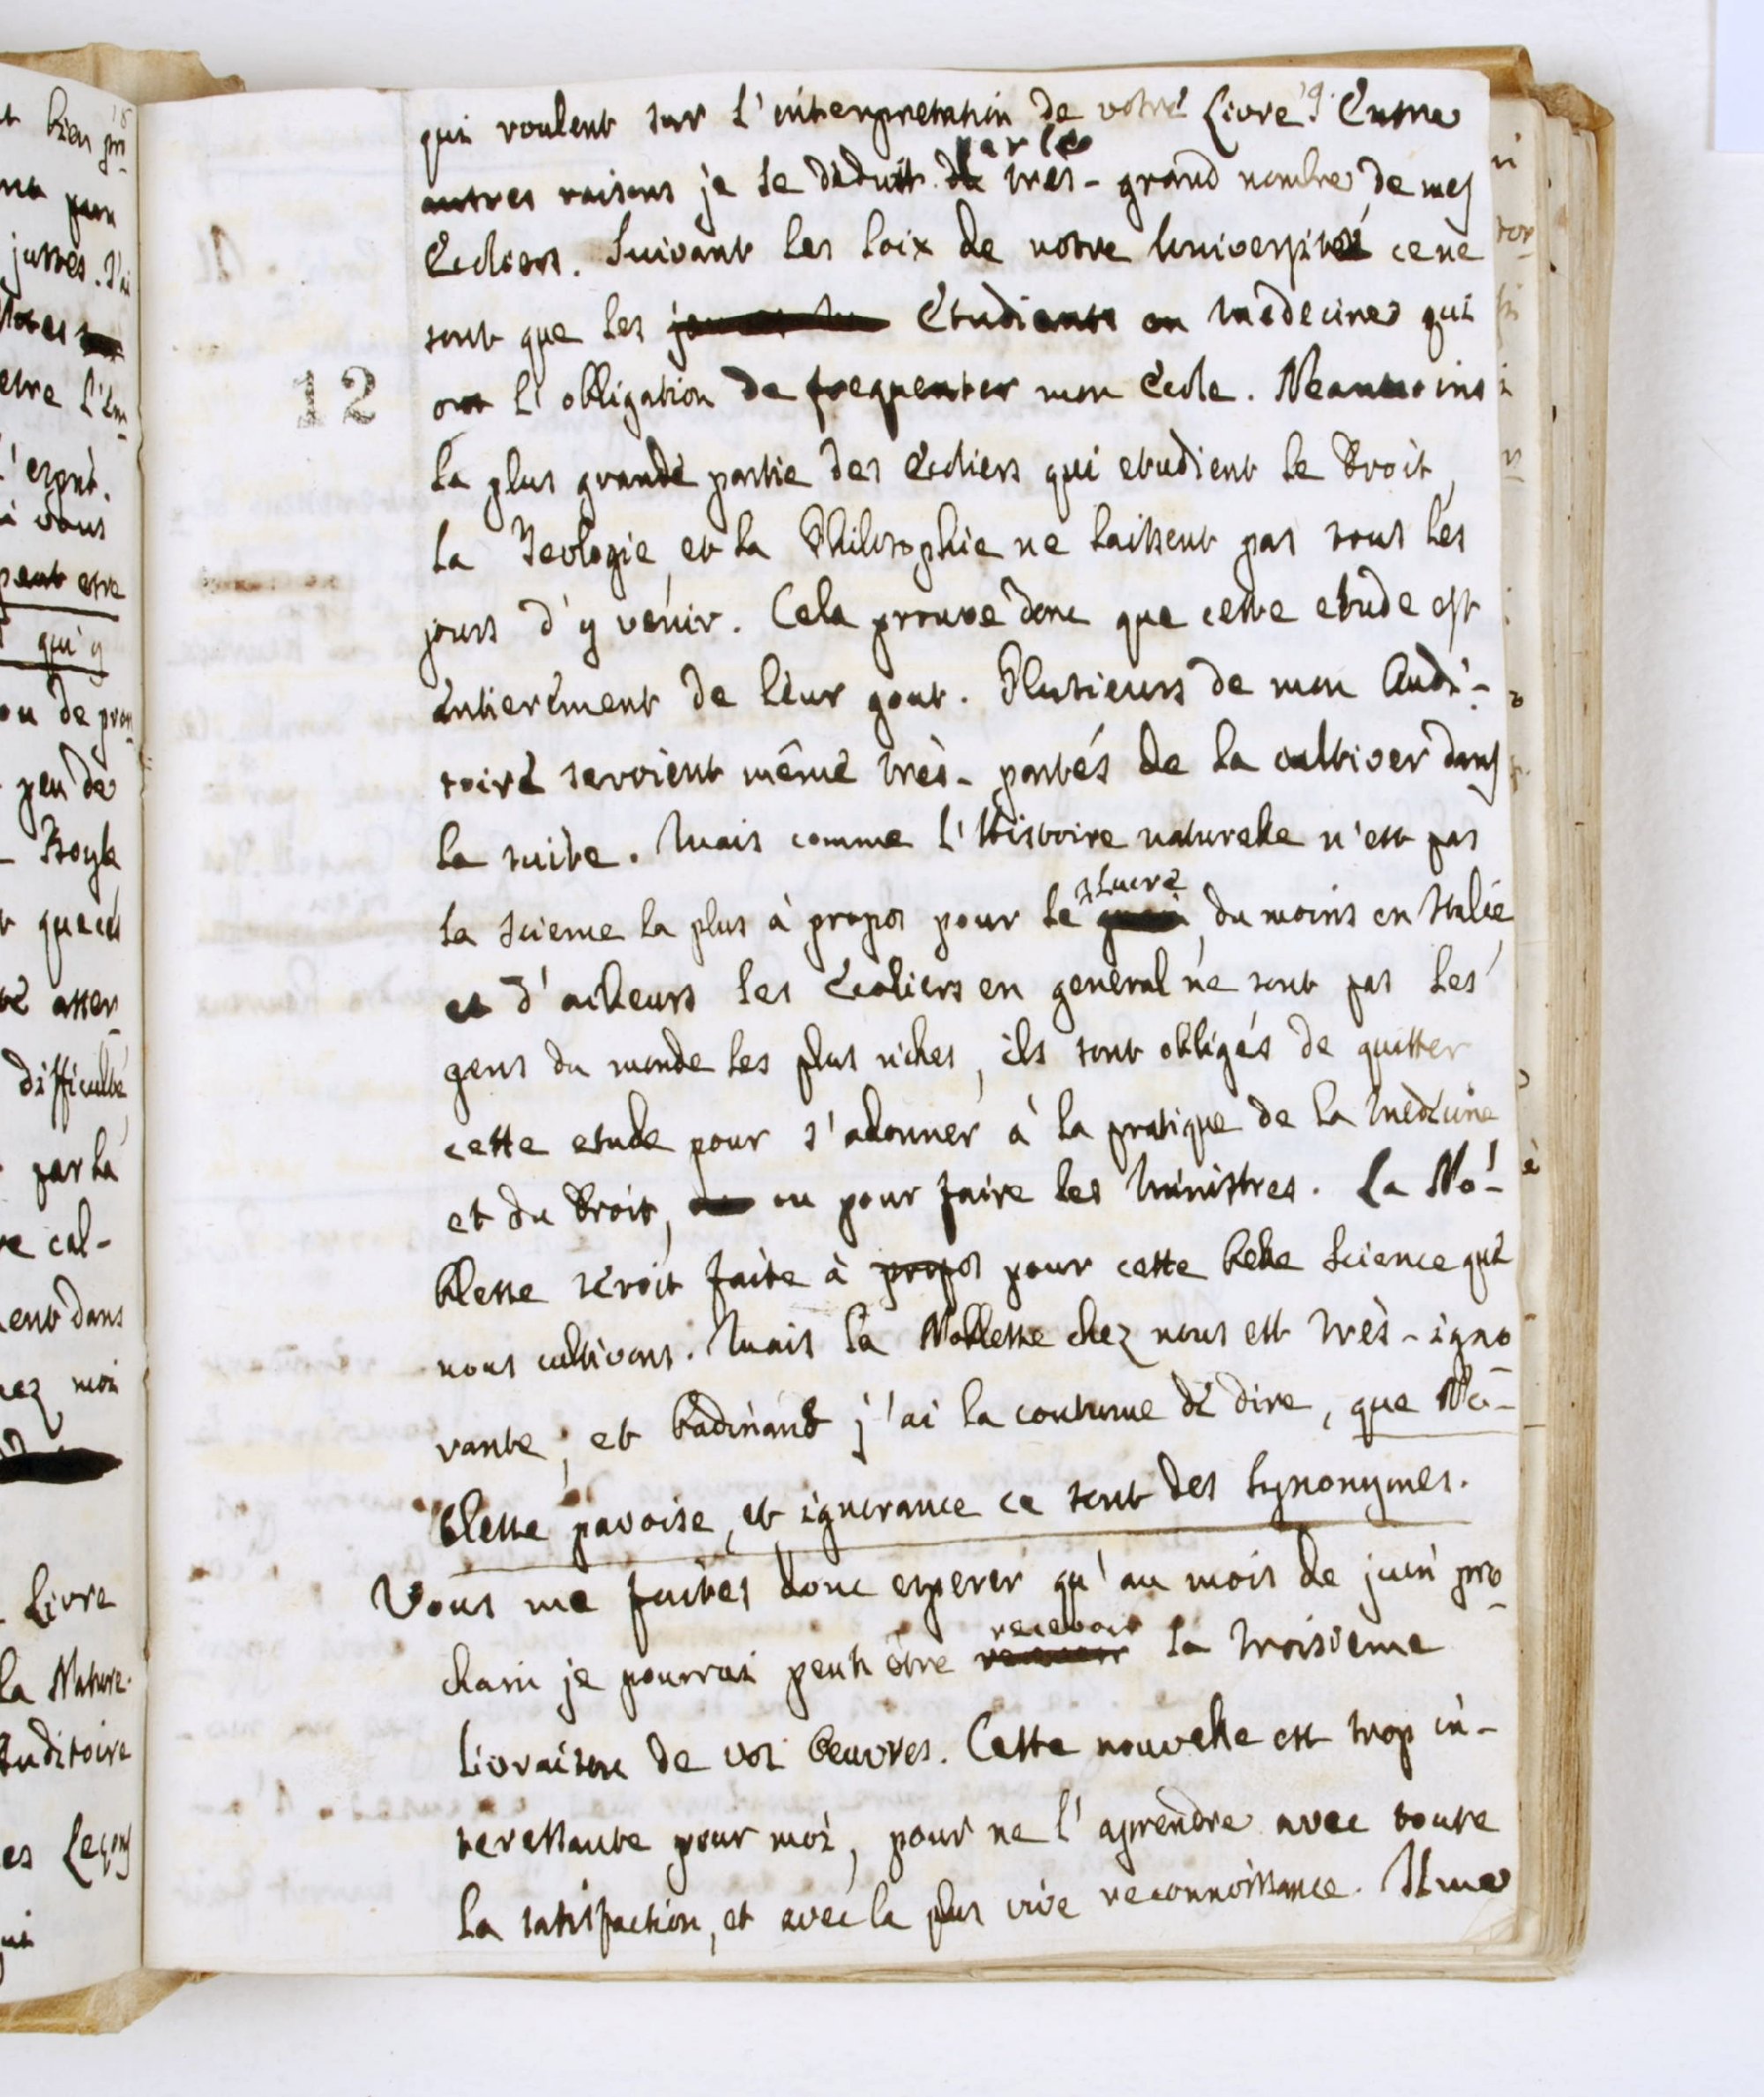 qui roulent sur l'interpretation de votre Livre. Entre
19.
par le
autres raisons je le deduit du très-grand nombre de mes
Ecoliers. Suivant les loix de notre Université ce ne
sont que les Etudiants en Médecine qui
12
ont l'obligation de frequenter mon Ecole. Neanmoins
la plus grande partie des Ecoliers qui etudient le Droit,
la Teologie, et la Philosophie ne laissent pas tous les
jours d'y venir. Cela prouve donc que cette etude est
entierement de leur gout. Plusieurs de mon Audi-
toire seroient même très-portés de la cultiver dans
la suite. Mais comme l'Histoire naturelle n'est pas
lucre
la science la plus à propos pour le , du moins en Italie
et d'ailleurs les Ecoliers en general ne sont pas les
gens du monde les plus riches, ils sont obligés de quitter
cette etude pour s'adonner à la pratique de la Médecine
et du Droit, ou pour faire les Ministres. La No-
blesse seroit faite à propos pour cette belle Science que
nous cultivons. Mais la Noblesse chez nous est très-igno
rante, et badinant j'ai la coutume de dire, que No-
blesse pavoise, et ignorance ce sont des Synonymes.
Vous me faites donc esperer qu'au mois de juin pro
recevoir
chain je pourrai peut être la troisième
livraison de vos Oeuvres. Cette nouvelle est trop in-
teressante pour moi, pour ne l'aprendre avec toute
la satisfaction, et avec la plus vive reconnoissance. Il me
bien
justes. J'ai
Notes
etre l'Em
l'esprit.
à vous
peut etre
qui y
ou de pron
peu de
Boyle
difficulté
par la
re cal-
ent dans
hez moi
Livre
la Nature.
Auditoire
es Leçons